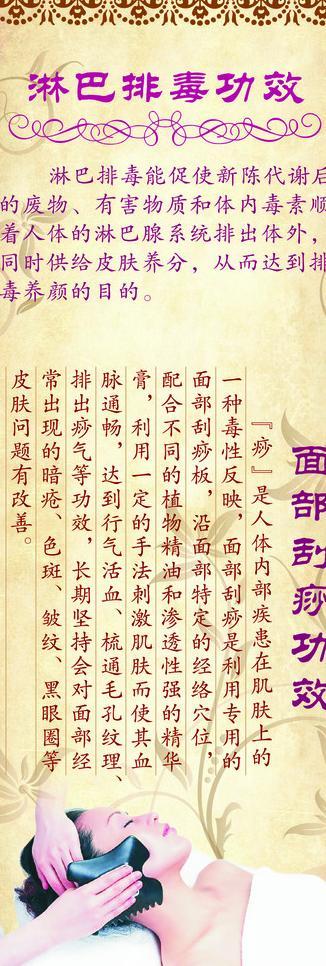 淋巴排毒功效
淋巴排毒能促使新陈代谢后
的废物、有害物质和体内毒素顺
着人体的淋巴腺系统排出体外，
同时供给皮肤养分，从而达到排
毒养颜的目的。
面部刮痧功效
『痧』是人体内部疾患在肌肤上的
一种毒性反映，面部刮痧是利用专用的
面部刮痧板，沿面部特定的经络穴位，
配合不同的植物精油和渗透性强的精华
膏，利用一定的手法刺激肌肤而使其血
脉通畅，达到行气活血、梳通毛孔纹理、
排出痧气等功效，长期坚持会对面部经
常出现的暗疮、色斑、皱纹、黑眼圈等
皮肤问题有改善。